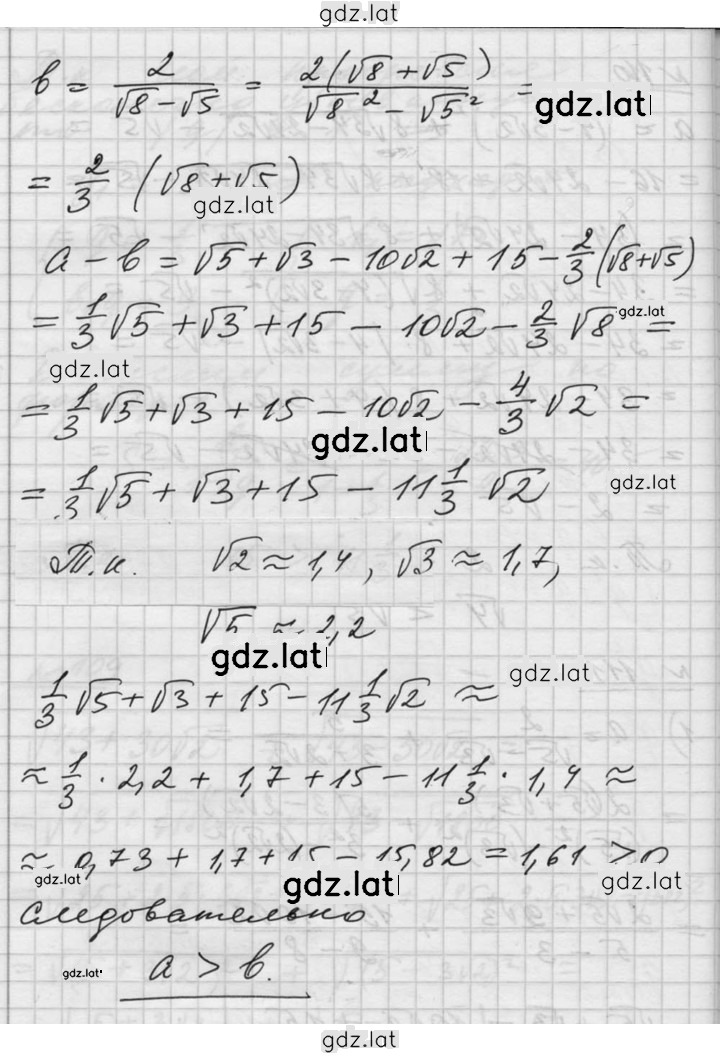 gdz.lat
b = 2/(√8 − √5) = 2(√8 + √5)/(√8² − √5²) =
gdz.lat
= 2/3 (√8 + √5)
gdz.lat
a − b = √5 + √3 − 10√2 + 15 − 2/3(√8 + √5)
= 1/3 √5 + √3 + 15 − 10√2 − 2/3 √8 =
gdz.lat
gdz.lat
= 1/3 √5 + √3 + 15 − 10√2 − 4/3 √2 =
gdz.lat
= 1/3 √5 + √3 + 15 − 11 1/3 √2
gdz.lat
Т.к. √2 ≈ 1,4, √3 ≈ 1,7,
√5 ≈ 2,2
gdz.lat
gdz.lat
1/3 √5 + √3 + 15 − 11 1/3 √2 ≈
≈ 1/3 · 2,2 + 1,7 + 15 − 11 1/3 · 1,4 ≈
≈ 0,73 + 1,7 + 15 − 15,82 = 1,61 > 0
gdz.lat
gdz.lat
gdz.lat
следовательно
gdz.lat
a > b.
gdz.lat